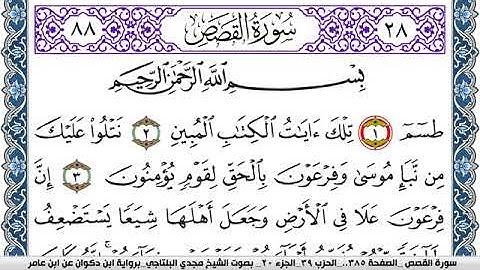 ٢٨ سُورَةُ القَصَصِ ٨٨
بِسْمِ اللَّهِ الرَّحْمَٰنِ الرَّحِيمِ
طسٓمٓ ١ تِلْكَ ءَايَٰتُ الْكِتَٰبِ الْمُبِينِ ٢ نَتْلُوا۟ عَلَيْكَ
مِن نَّبَإِ مُوسَىٰ وَفِرْعَوْنَ بِالْحَقِّ لِقَوْمٍ يُؤْمِنُونَ ٣ إِنَّ
فِرْعَوْنَ عَلَا فِى الْأَرْضِ وَجَعَلَ أَهْلَهَا شِيَعًا يَسْتَضْعِفُ
سورة القصص _الصفحة ٣٨٥.. الحزب ٣٩_الجزء ٢٠_ بصوت الشيخ مجدي البلتاجي_برواية ابن ذكوان عن ابن عامر